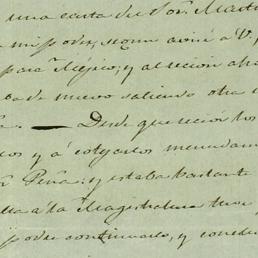 una carta del Sor. Mart
mi poder, segun avisé a V.
para Méjico; y al recien
de nuevo saliendo otra
— Desde que recibi los
y á cotejarlos menudam
Peña: y estaba bastante
a la Magistratura tuve
poder continuarlo, y conclu